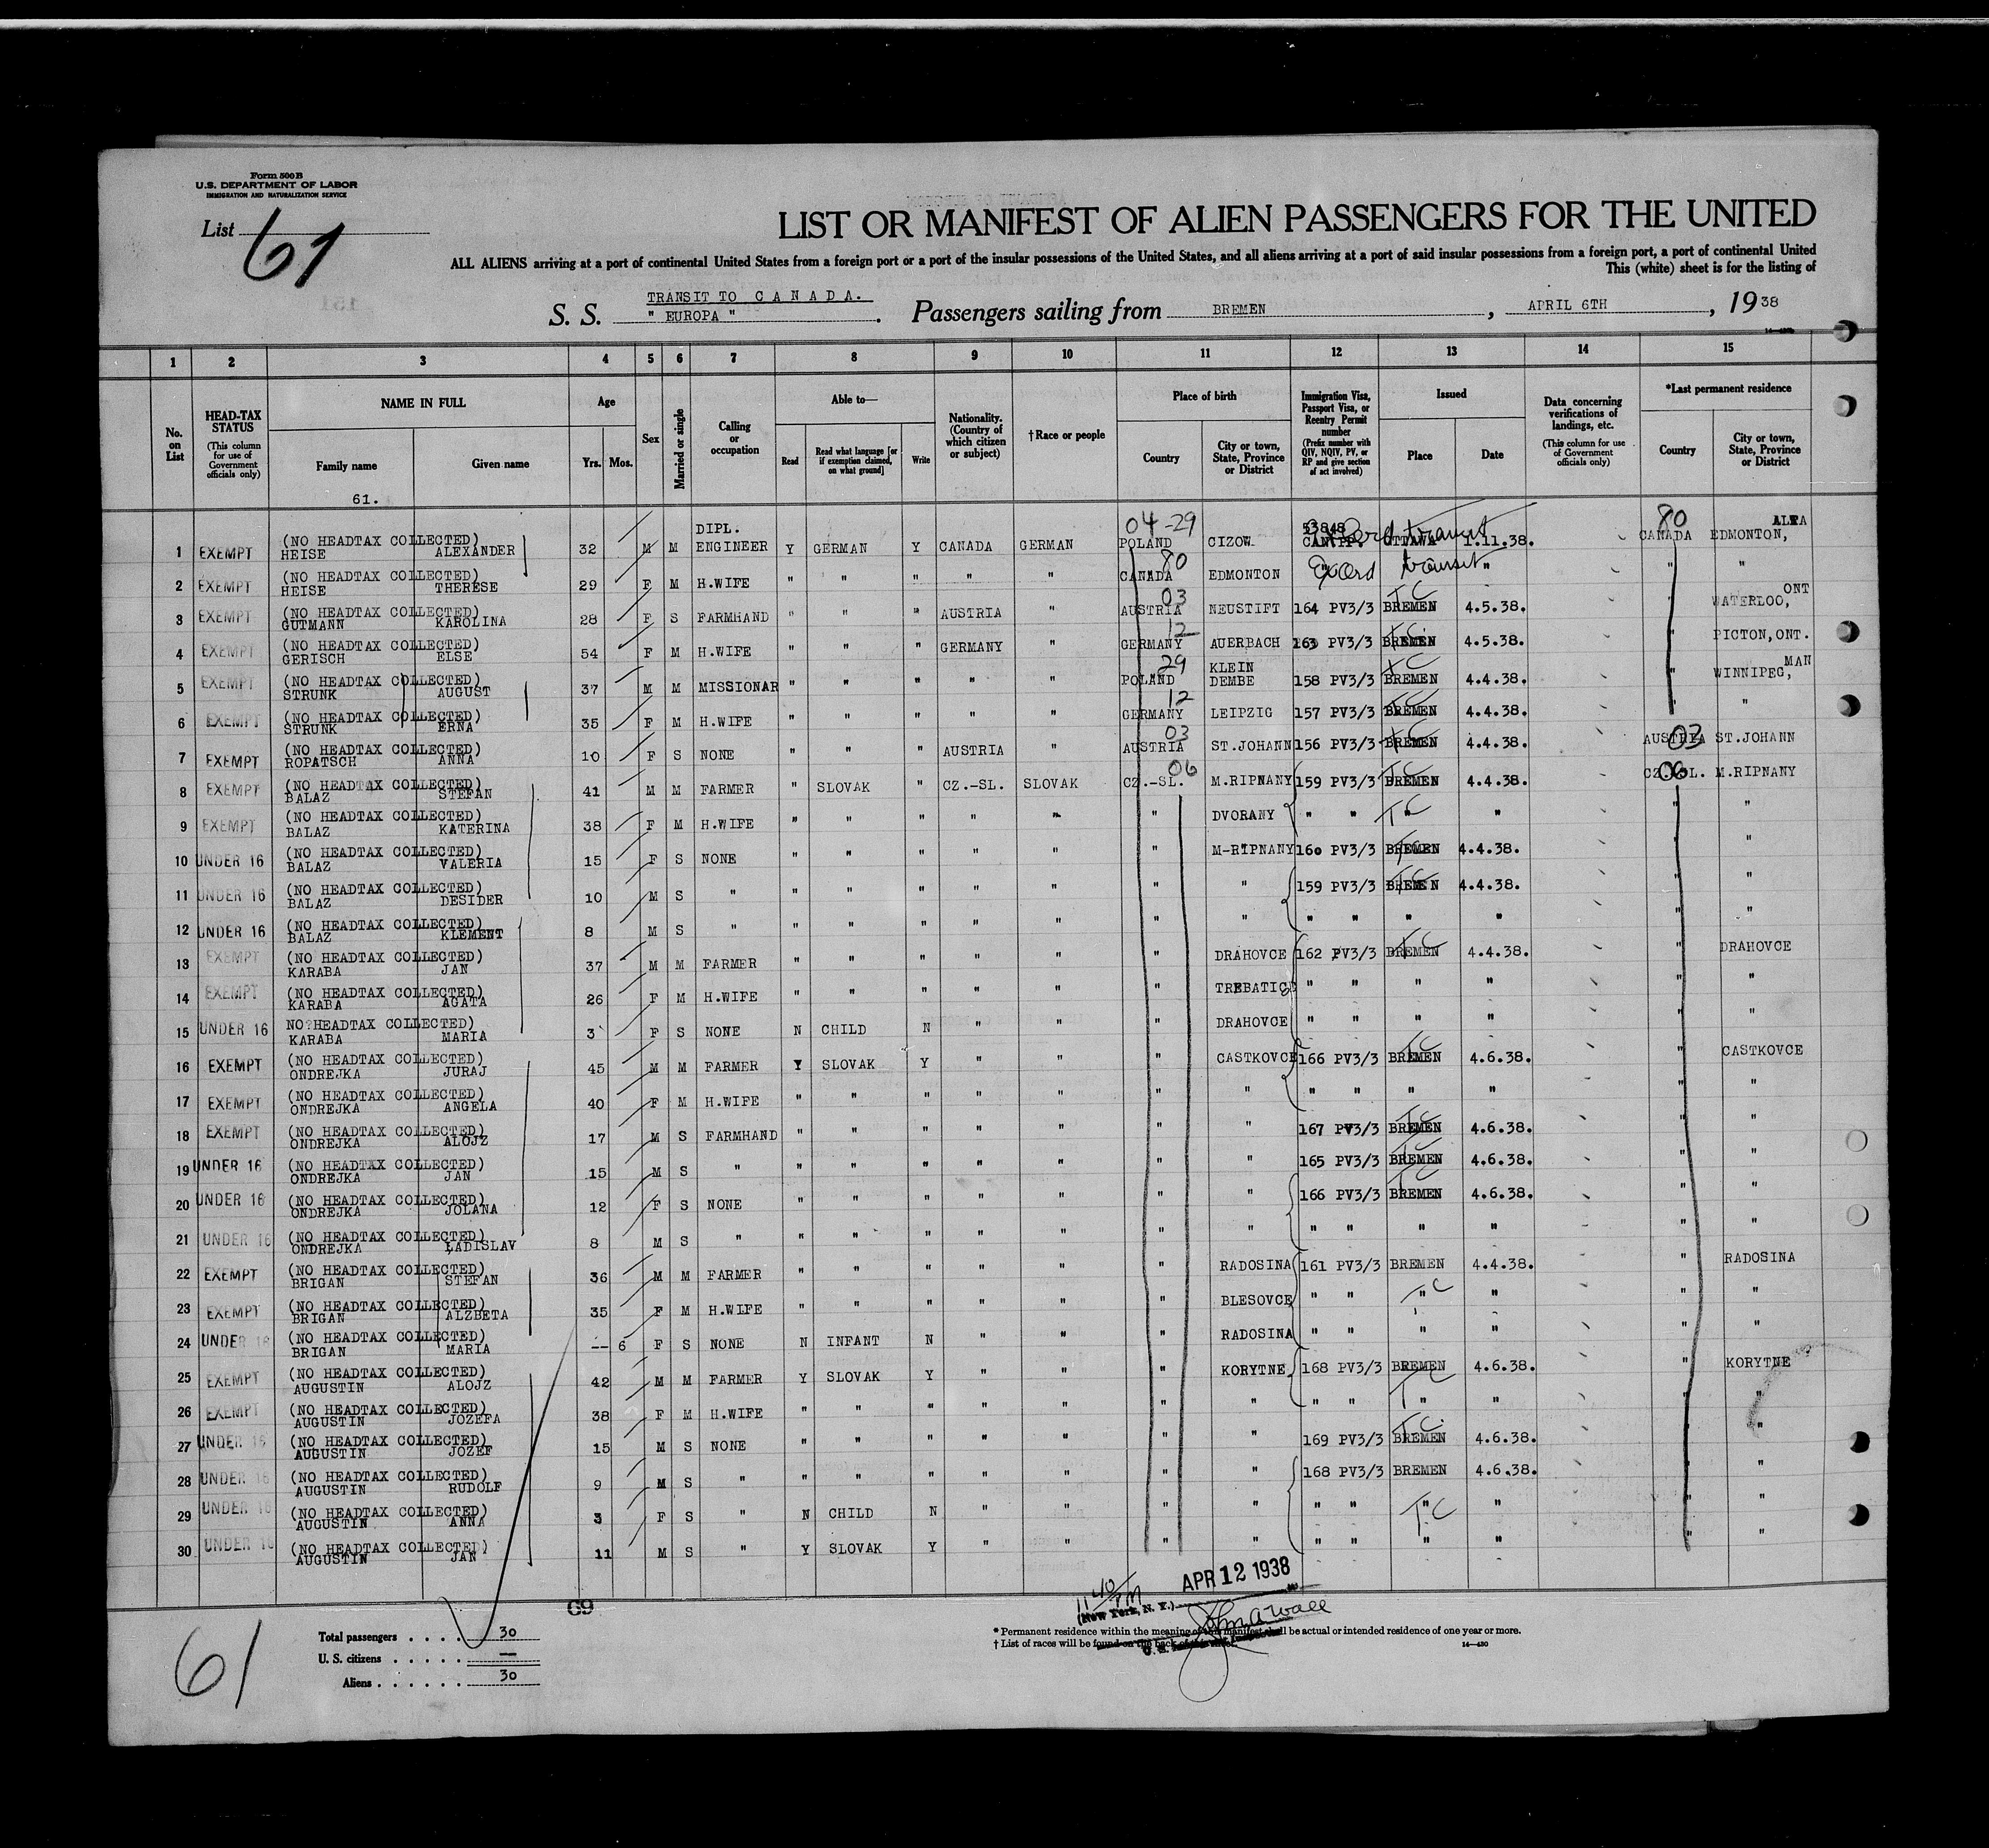 Form 500 B
U.S. DEPARTMENT OF LABOR
IMMIGRATION AND NATURALIZATION SERVICE
List 61
LIST OR MANIFEST OF ALIEN PASSENGERS FOR THE UNITED
ALL ALIENS arriving at a port of continental United States from a foreign port or a port of the insular possessions of the United States, and all aliens arriving at a port of said insular possessions from a foreign port, a port of continental United
This (white) sheet is for the listing of
TRANSIT TO C A N A D A.
S. S. " EUROPA " . Passengers sailing from BREMEN , APRIL 6TH , 19 38
1 2 3 4 5 6 7 8 9 10 11 12 13 14 15
No. on List
HEAD-TAX STATUS (This column for use of Government officials only)
NAME IN FULL
Family name Given name
61.
Age
Yrs. Mos.
Sex
Married or single
Calling or occupation
Able to—
Read
Read what language [or if exemption claimed, on what ground]
Write
Nationality. (Country of which citizen or subject)
†Race or people
Place of birth
Country
City or town, State, Province or District
Immigration Visa, Passport Visa, or Reentry Permit number (Prefix number with QIV, NQIV, PV, or RP and give section of act involved)
Issued
Place Date
Data concerning verifications of landings, etc. (This column for use of Government officials only)
*Last permanent residence
Country
City or town, State, Province or District
DIPL. 04-29 53848 80 ALTA
1 EXEMPT (NO HEADTAX COLLECTED) HEISE ALEXANDER 32 M M ENGINEER Y GERMAN Y CANADA GERMAN POLAND CIZOW CAN.PP. OTTAWA 1.11.38. CANADA EDMONTON,
80 transit
2 EXEMPT (NO HEADTAX COLLECTED) HEISE THERESE 29 F M H.WIFE " " " " " CANADA EDMONTON transit " " "
03 TC ONT
3 EXEMPT (NO HEADTAX COLLECTED) GUTMANN KAROLINA 28 F S FARMHAND " " " AUSTRIA " AUSTRIA NEUSTIFT 164 PV3/3 BREMEN 4.5.38. " WATERLOO,
12 TC
4 EXEMPT (NO HEADTAX COLLECTED) GERISCH ELSE 54 F M H.WIFE " " " GERMANY " GERMANY AUERBACH 163 PV3/3 BREMEN 4.5.38. " PICTON, ONT.
29 KLEIN TC MAN
5 EXEMPT (NO HEADTAX COLLECTED) STRUNK AUGUST 37 M M MISSIONAR " " " " " POLAND DEMBE 158 PV3/3 BREMEN 4.4.38. " WINNIPEG,
12 TC
6 EXEMPT (NO HEADTAX COLLECTED) STRUNK ERNA 35 F M H.WIFE " " " " " GERMANY LEIPZIG 157 PV3/3 BREMEN 4.4.38. " "
03 TC 03
7 EXEMPT (NO HEADTAX COLLECTED) ROPATSCH ANNA 10 F S NONE " " " AUSTRIA " AUSTRIA ST.JOHANN 156 PV3/3 BREMEN 4.4.38. AUSTRIA ST.JOHANN
06 TC 06
8 EXEMPT (NO HEADTAX COLLECTED) BALAZ STEFAN 41 M M FARMER " SLOVAK " CZ.-SL. SLOVAK CZ.-SL. M.RIPNANY 159 PV3/3 BREMEN 4.4.38. CZ.-SL. M.RIPNANY
9 EXEMPT (NO HEADTAX COLLECTED) BALAZ KATERINA 38 F M H.WIFE " " " " " " DVORANY " " " TC " " "
10 UNDER 16 (NO HEADTAX COLLECTED) BALAZ VALERIA 15 F S NONE " " " " " " M-RIPNANY 160 PV3/3 BREMEN 4.4.38. " "
11 UNDER 16 (NO HEADTAX COLLECTED) BALAZ DESIDER 10 M S " " " " " " " " 159 PV3/3 BREMEN 4.4.38. " "
12 UNDER 16 (NO HEADTAX COLLECTED) BALAZ KLEMENT 8 M S " " " " " " " " " " " " " "
13 EXEMPT (NO HEADTAX COLLECTED) KARABA JAN 37 M M FARMER " " " " " " DRAHOVCE 162 PV3/3 BREMEN TC 4.4.38. " DRAHOVCE
14 EXEMPT (NO HEADTAX COLLECTED) KARABA AGATA 26 F M H.WIFE " " " " " " TREBATICE " " " " " "
15 UNDER 16 NO HEADTAX COLLECTED) KARABA MARIA 3 F S NONE N CHILD N " " " DRAHOVCE " " " " " "
16 EXEMPT (NO HEADTAX COLLECTED) ONDREJKA JURAJ 45 M M FARMER Y SLOVAK Y " " " CASTKOVCE 166 PV3/3 BREMEN TC 4.6.38. " CASTKOVCE
17 EXEMPT (NO HEADTAX COLLECTED) ONDREJKA ANGELA 40 F M H.WIFE " " " " " " " " " " " " "
18 EXEMPT (NO HEADTAX COLLECTED) ONDREJKA ALOJZ 17 M S FARMHAND " " " " " " " 167 PV3/3 BREMEN TC 4.6.38. " "
19 UNDER 16 (NO HEADTAX COLLECTED) ONDREJKA JAN 15 M S " " " " " " " " 165 PV3/3 BREMEN TC 4.6.38. " "
20 UNDER 16 (NO HEADTAX COLLECTED) ONDREJKA JOLANA 12 F S NONE " " " " " " " 166 PV3/3 BREMEN TC 4.6.38. " "
21 UNDER 16 (NO HEADTAX COLLECTED) ONDREJKA LADISLAV 8 M S " " " " " " " " " " " " " "
22 EXEMPT (NO HEADTAX COLLECTED) BRIGAN STEFAN 36 M M FARMER " " " " " " RADOSINA 161 PV3/3 BREMEN 4.4.38. " RADOSINA
23 EXEMPT (NO HEADTAX COLLECTED) BRIGAN ALZBETA 35 F M H.WIFE " " " " " " BLESOVCE " " " TC " " "
24 UNDER 16 (NO HEADTAX COLLECTED) BRIGAN MARIA -- 6 F S NONE N INFANT N " " " RADOSINA " " " " " "
25 EXEMPT (NO HEADTAX COLLECTED) AUGUSTIN ALOJZ 42 M M FARMER Y SLOVAK Y " " " KORYTNE 168 PV3/3 BREMEN 4.6.38. " KORYTNE
26 EXEMPT (NO HEADTAX COLLECTED) AUGUSTIN JOZEFA 38 F M H.WIFE " " " " " " " " " TC " " "
27 UNDER 16 (NO HEADTAX COLLECTED) AUGUSTIN JOZEF 15 M S NONE " " " " " " " 169 PV3/3 BREMEN TC 4.6.38. " "
28 UNDER 16 (NO HEADTAX COLLECTED) AUGUSTIN RUDOLF 9 M S " " " " " " " " 168 PV3/3 BREMEN 4.6.38. " "
29 UNDER 16 (NO HEADTAX COLLECTED) AUGUSTIN ANNA 3 F S " N CHILD N " " " " " " " TC " " "
30 UNDER 16 (NO HEADTAX COLLECTED) AUGUSTIN JAN 11 M S " Y SLOVAK Y " " " " " " " " " "
69
11 40 PM APR 12 1938
(New York, N. Y.)
John A Wall
61
Total passengers . . . . 30
U. S. citizens . . . . . —
Aliens . . . . . . 30
* Permanent residence within the meaning of this manifest shall be actual or intended residence of one year or more.
† List of races will be found on the back of this sheet.
14—430